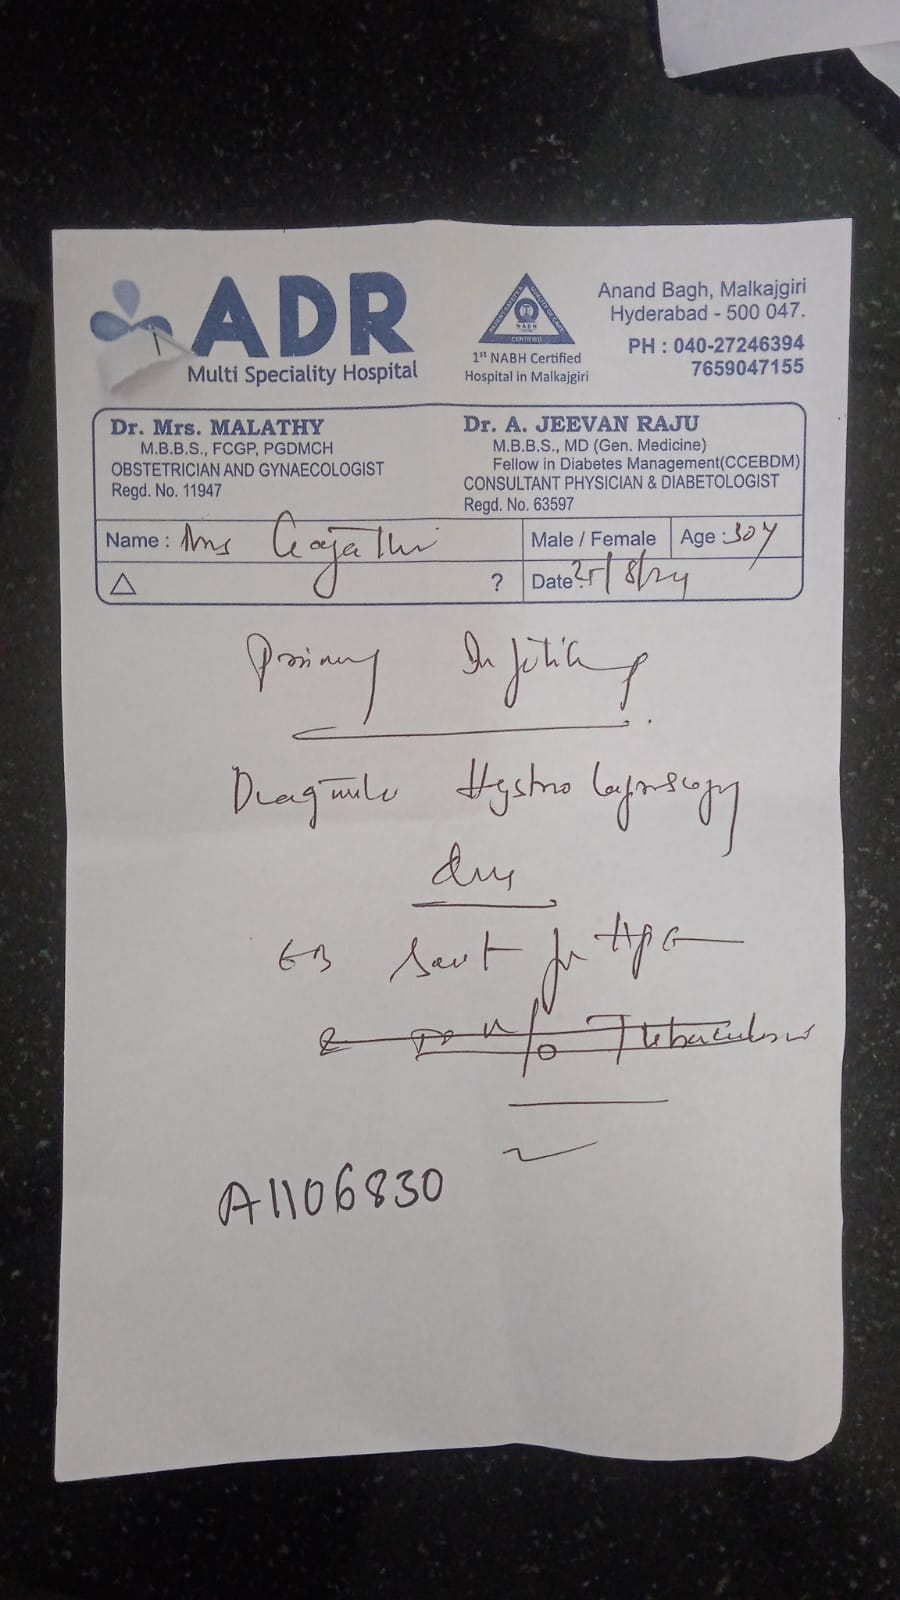 ADR
Multi Speciality Hospital
CERTIFIED
NABH
1st NABH Certified
Hospital in Malkajgiri
Anand Bagh, Malkajgiri
Hyderabad - 500 047.
PH : 040-27246394
7659047155
Dr. Mrs. MALATHY
M.B.B.S., FCGP, PGDMCH
OBSTETRICIAN AND GYNAECOLOGIST
Regd. No. 11947
Dr. A. JEEVAN RAJU
M.B.B.S., MD (Gen. Medicine)
Fellow in Diabetes Management(CCEBDM)
CONSULTANT PHYSICIAN & DIABETOLOGIST
Regd. No. 63597
Name : Mrs Gayathri
Male / Female
Age : 30y
△ ?
Date : 25/8/24
Primary Infertility
Diagnostic Hystrolaparoscopy
done
EB sent for HPE
Tuberculosis
A1106830